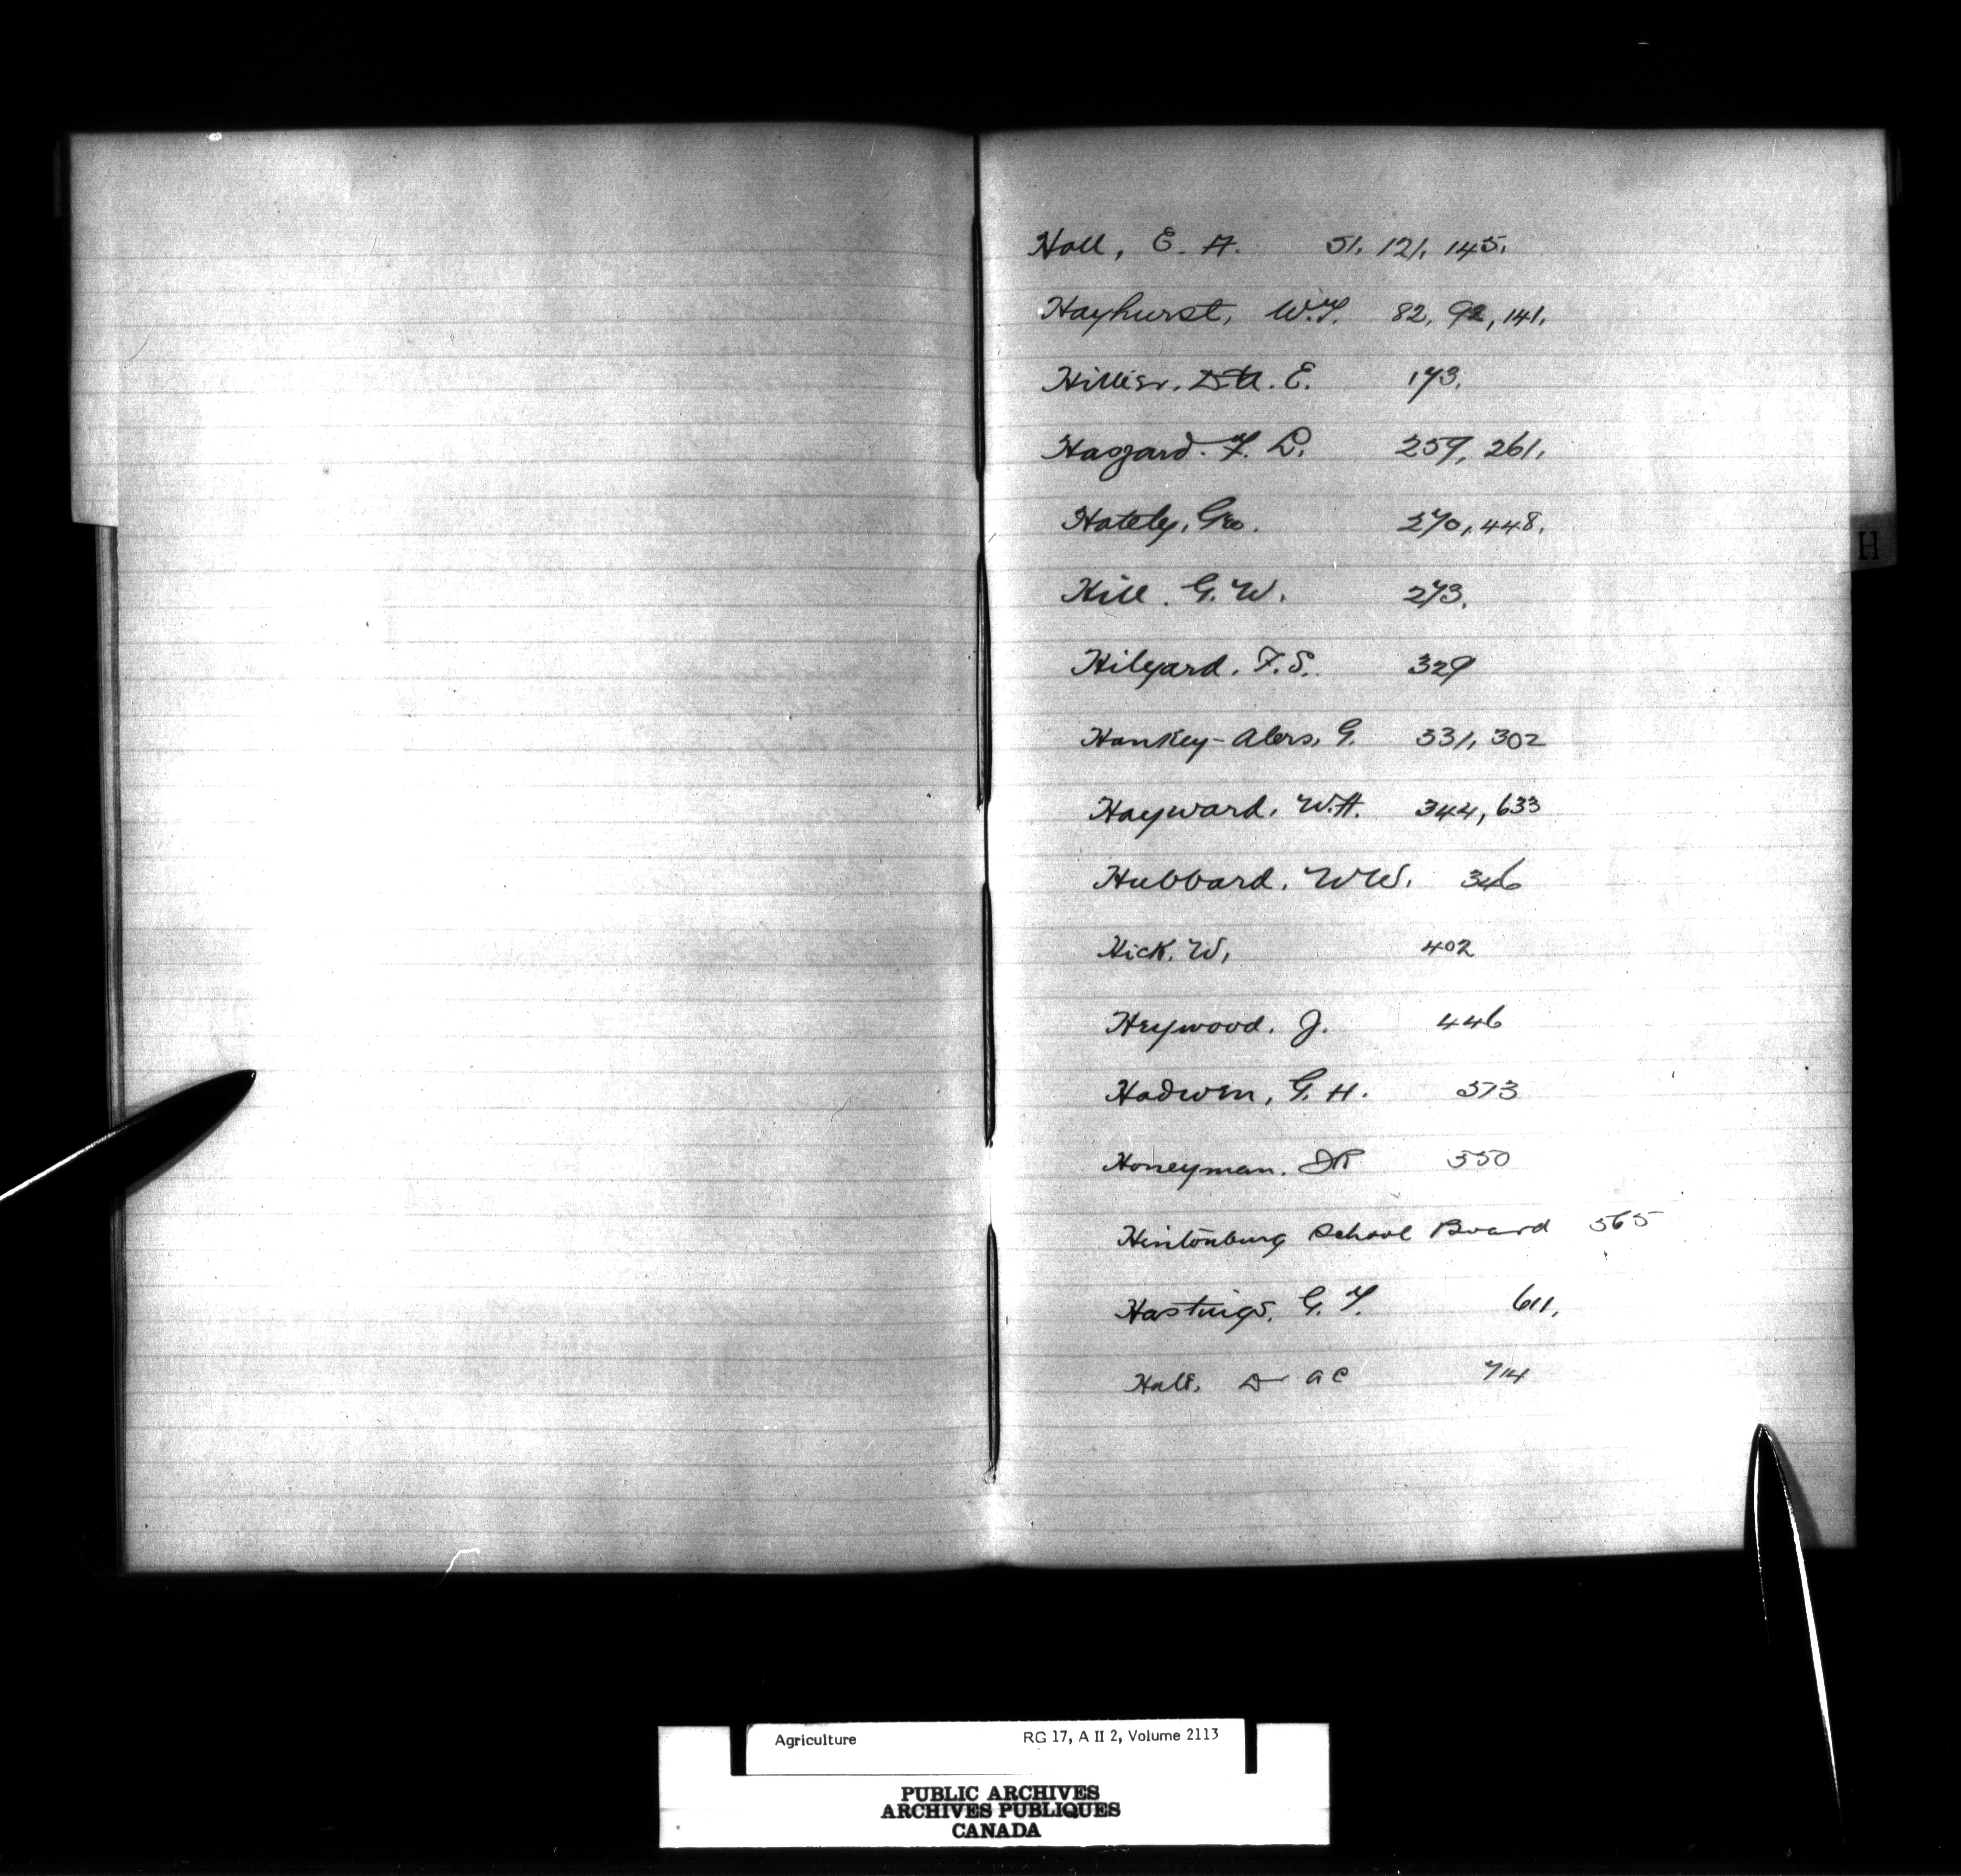 Hall, E. A. 51, 121, 145.
Hayhurst, W.T. 82, 92, 141.
Hillier. E. 173.
Haszard. F. L. 259, 261.
Hately, Geo. 270, 448.
H
Hill. G. W. 273.
Hilyard. F. S. 329
Hankey-Alers, G. 331, 302
Hayward, W.H. 344, 633
Hubbard, W W. 346
Hick. W, 402
Heywood. J. 446
Hadwen, G. H. 373
Honeyman. DR 550
Hintonburg School Board 565
Hastings, G. T. 611,
Hall, Dr A C 714
Agriculture RG 17, A II 2, Volume 2113
PUBLIC ARCHIVES
ARCHIVES PUBLIQUES
CANADA